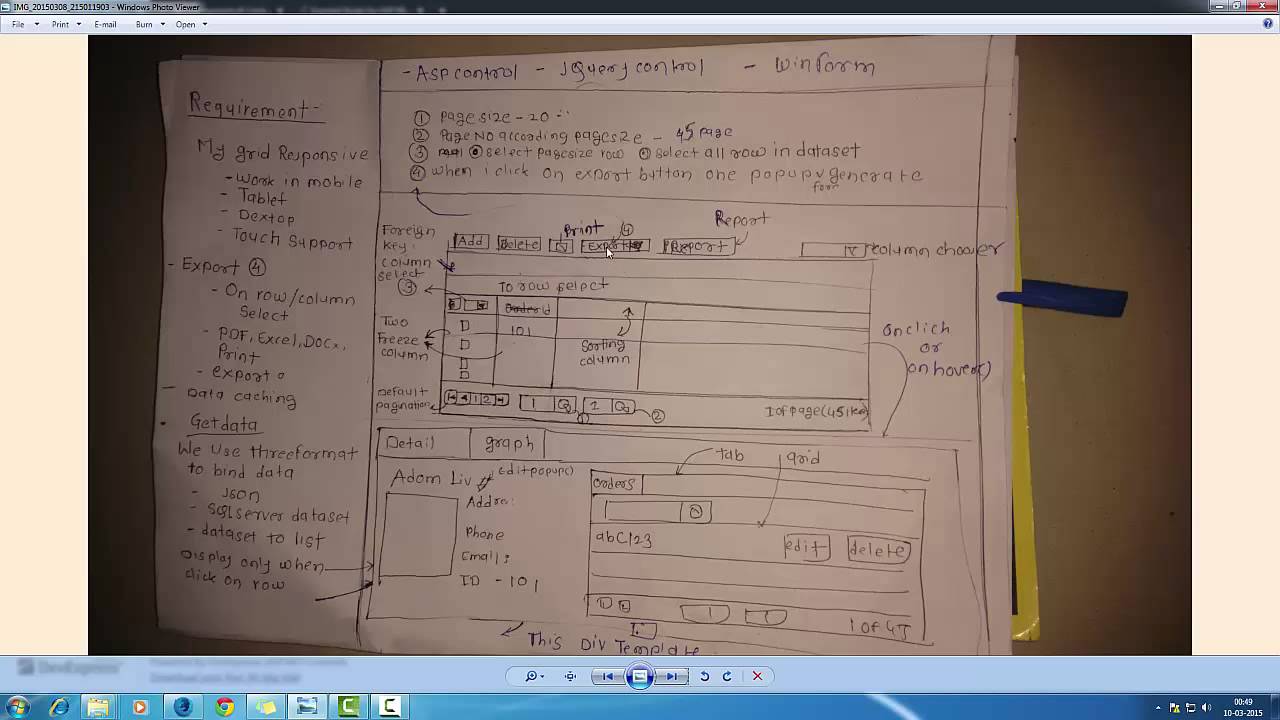 IMG_20150308_215011903 - Windows Photo Viewer
File Print E-mail Burn Open
Requirement-
My grid Responsive
- Work in mobile
- Tablet
- Dextop
- Touch Support
- Export 4
- On row/column
Select
- PDF, Excel, DOCx,
Print
- export
- Data caching
Getdata
We use threeformat
to bind data
- Json
- SQlserver dataset
- dataset to list
Display only when
click on row
- ASP control - JQuery control - winform
1 page size - 20
2 Page No according pagesize - 45 page
3 select pagesize row select all row in dataset
4 when i click on export button one popup generate
form
Foreign
key:
column
select
3
Print 4 Report
Add Delete Export Report column choover
To row select
Order id
101
Two
Freeze
column
Sorting
column
onclich
or
onhover()
Default
pagination
1 2
1 Q 1 Q
1 2
1 of page(45
Detail graph
Adom Liv
Edit popup()
Addre:
Phone
Email:
ID - 101
tab grid
Orders
abC123 edit delete
1 1
1 of 45
This Div Template
DevExpress
00:49
10-03-2015